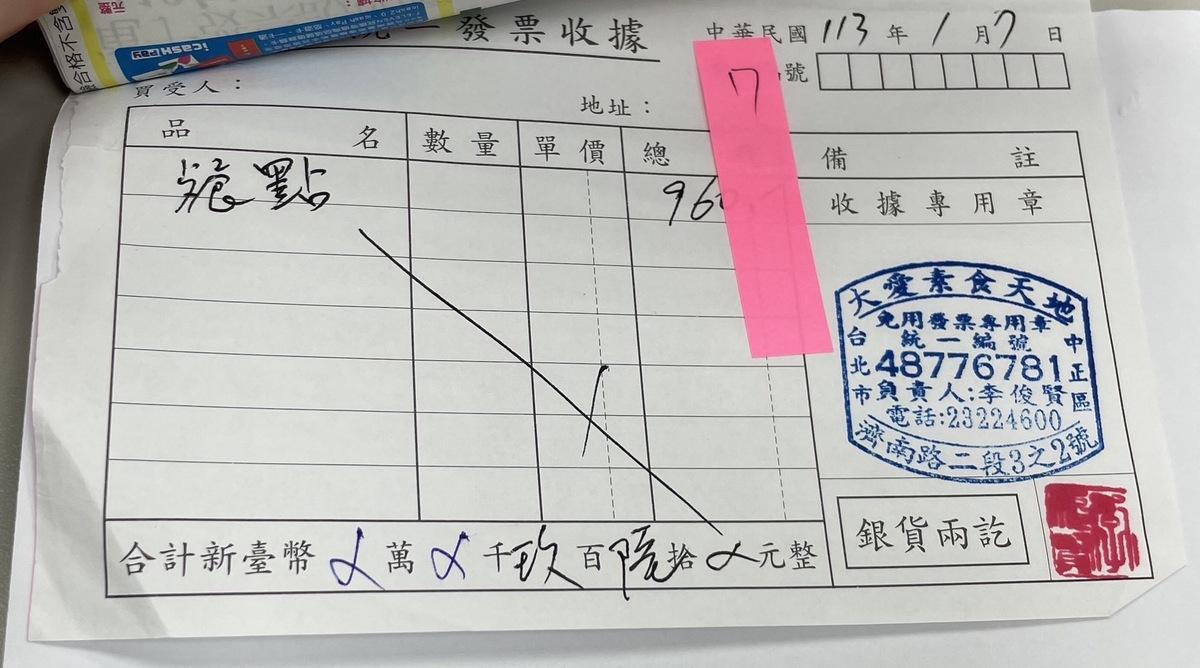 一發票收據
中華民國 113 年 1 月 7 日
號
買受人：
地址：
7
icash Pay
品名 數量 單價 總 備註
餐點 960
收據專用章
大愛素食天地
免用發票專用章
統一編號
48776781
負責人:李俊賢
電話:23224600
台北市 中正區
濟南路二段3之2號
合計新臺幣 乂 萬 乂 千 玖 百 陸 拾 乂 元整
銀貨兩訖